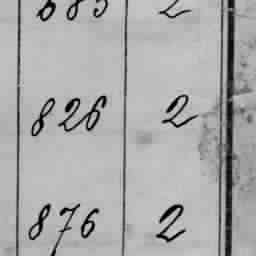 2
826 2
876 2